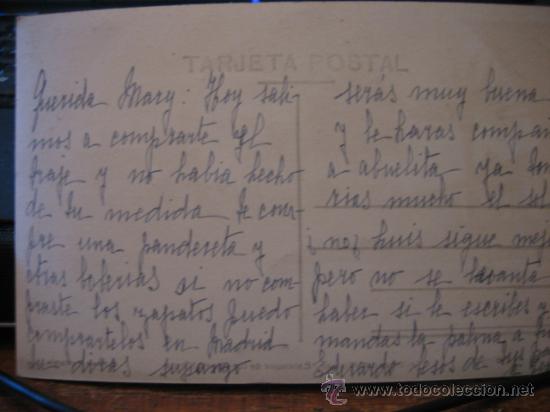 TARJETA POSTAL
Querida Mary: Hoy sali-
mos a comprarte el
traje y no habia hecho
de tu medida te com-
pre una pandereta y
otras boberias si no com-
praste los zapatos puedo
comprartelos en Madrid
tu diras
serás muy buena
y le haras compañ
a abuelita ya
mucho el sol
¿no? Luis sigue
pero no se levanta
haber si le escribes y
mandas la palma a
Eduardo besos de
todocoleccion
www.todocoleccion.net